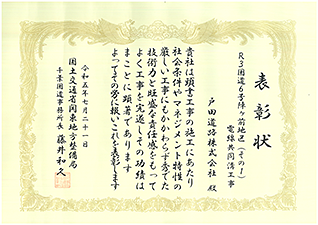 表彰状
R3国道6号陣ヶ前地区（その1）
電線共同溝工事
戸田道路株式会社 殿
貴社は頭書工事の施工にあたり
社会条件やマネジメント特性の
厳しい工事にもかかわらず秀でた
技術力と旺盛な責任感をもって
よく工事を完遂しその功績は
まことに顕著であります
よってその労に報いこれを表彰します
令和五年七月二十一日
国土交通省関東地方整備局
千葉国道事務所長 藤井和久